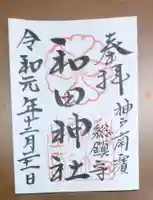 奉拝
神戸南濱
総鎮守
和田神社
令和元年十二月 日